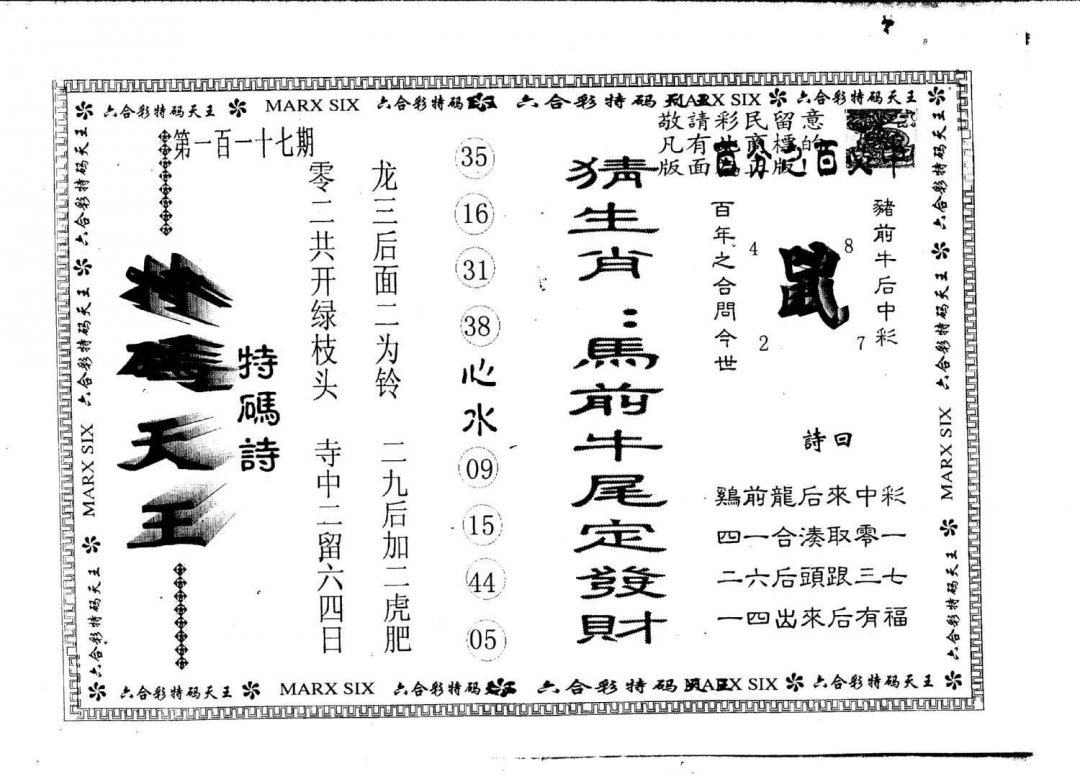 六合彩特码天王 MARX SIX 六合彩特码 六合彩特码天王 MARX SIX 六合彩特码天王
敬請彩民留意
凡有 商標的
版面 版
第一百一十七期
特碼天王
特碼詩
零二共开绿枝头 寺中二留六四日
龙三后面二为铃 二九后加二虎肥
35
16
31
38
心水
09
15
44
05
猜生肖:馬前牛尾定發財
豬前牛后中彩
4 8
鼠
2 7
百年之合問今世
詩曰
鷄前龍后來中彩
四一合湊取零一
二六后頭跟三七
一四出來后有福
六合彩特码天王 六合彩特码天王 MARX SIX 六合彩特码天王
六合彩特码天王 六合彩特码天王 MARX SIX 六合彩特码天王
六合彩特码天王 MARX SIX 六合彩特码 六合彩特码 MARX SIX 六合彩特码天王